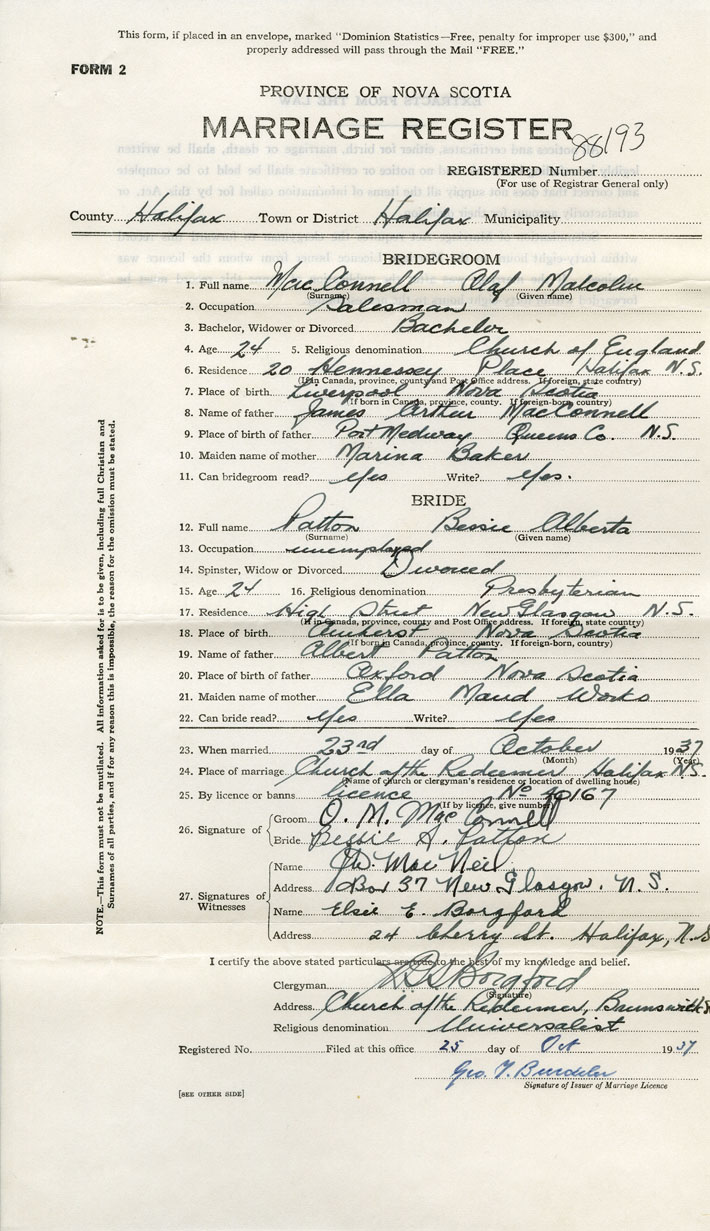 This form, if placed in an envelope, marked "Dominion Statistics—Free, penalty for improper use $300," and
properly addressed will pass through the Mail "FREE."
FORM 2
PROVINCE OF NOVA SCOTIA
MARRIAGE REGISTER
88193
REGISTERED Number
(For use of Registrar General only)
County Halifax Town or District Halifax Municipality
BRIDEGROOM
1. Full name MacConnell Olaf Malcolm
(Surname) (Given name)
2. Occupation Salesman
3. Bachelor, Widower or Divorced Bachelor
4. Age 24 5. Religious denomination Church of England
6. Residence 20 Hennessey Place Halifax N.S.
(If in Canada, province, county and Post Office address. If foreign, state country)
7. Place of birth Liverpool Nova Scotia
(If born in Canada, province, county. If foreign-born, country)
8. Name of father James Arthur MacConnell
9. Place of birth of father Port Medway Queens Co. N.S.
10. Maiden name of mother Marina Baker
11. Can bridegroom read? Yes Write? Yes.
BRIDE
12. Full name Patton Bessie Alberta
(Surname) (Given name)
13. Occupation unemployed
14. Spinster, Widow or Divorced Divorced
15. Age 24 16. Religious denomination Presbyterian
17. Residence High Street New Glasgow N.S.
(If in Canada, province, county and Post Office address. If foreign, state country)
18. Place of birth Amherst Nova Scotia
(If born in Canada, province, county. If foreign-born, country)
19. Name of father Albert Patton
20. Place of birth of father Oxford Nova Scotia
21. Maiden name of mother Ella Maud Works
22. Can bride read? Yes Write? Yes
23. When married 23rd day of October 1937
(Month) (Year)
24. Place of marriage Church of the Redeemer Halifax N.S.
(Name of church or clergyman's residence or location of dwelling house)
25. By licence or banns licence No
(If by licence, give number)
26. Signature of Groom O. M. MacConnell
Bride Bessie A. Patton
27. Signatures of Witnesses
Name MacNeil
Address Box 37 New Glasgow. N.S.
Name Elsie E. Borgford
Address 24 Cherry St. Halifax, N.S
I certify the above stated particulars are true to the best of my knowledge and belief.
Clergyman Borgford
(Signature)
Address Church of the Redeemer, Brunswick S
Religious denomination Universalist
Registered No. Filed at this office 25 day of Oct 1937
Geo. T.
Signature of Issuer of Marriage Licence
[SEE OTHER SIDE]
NOTE.—This form must not be mutilated. All information asked for is to be given, including full Christian and
Surnames of all parties, and if for any reason this is impossible, the reason for the omission must be stated.